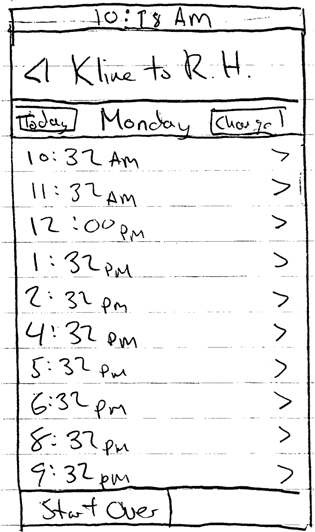 10:18 AM
◁ Kline to R.H.
Today Monday Change
10:32 AM >
11:32 AM >
12:00 PM >
1:32 PM >
2:32 PM >
4:32 PM >
5:32 PM >
6:32 PM >
8:32 PM >
9:32 PM >
Start Over